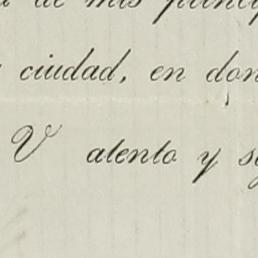 de mis princip
ciudad, en don
V atento y s